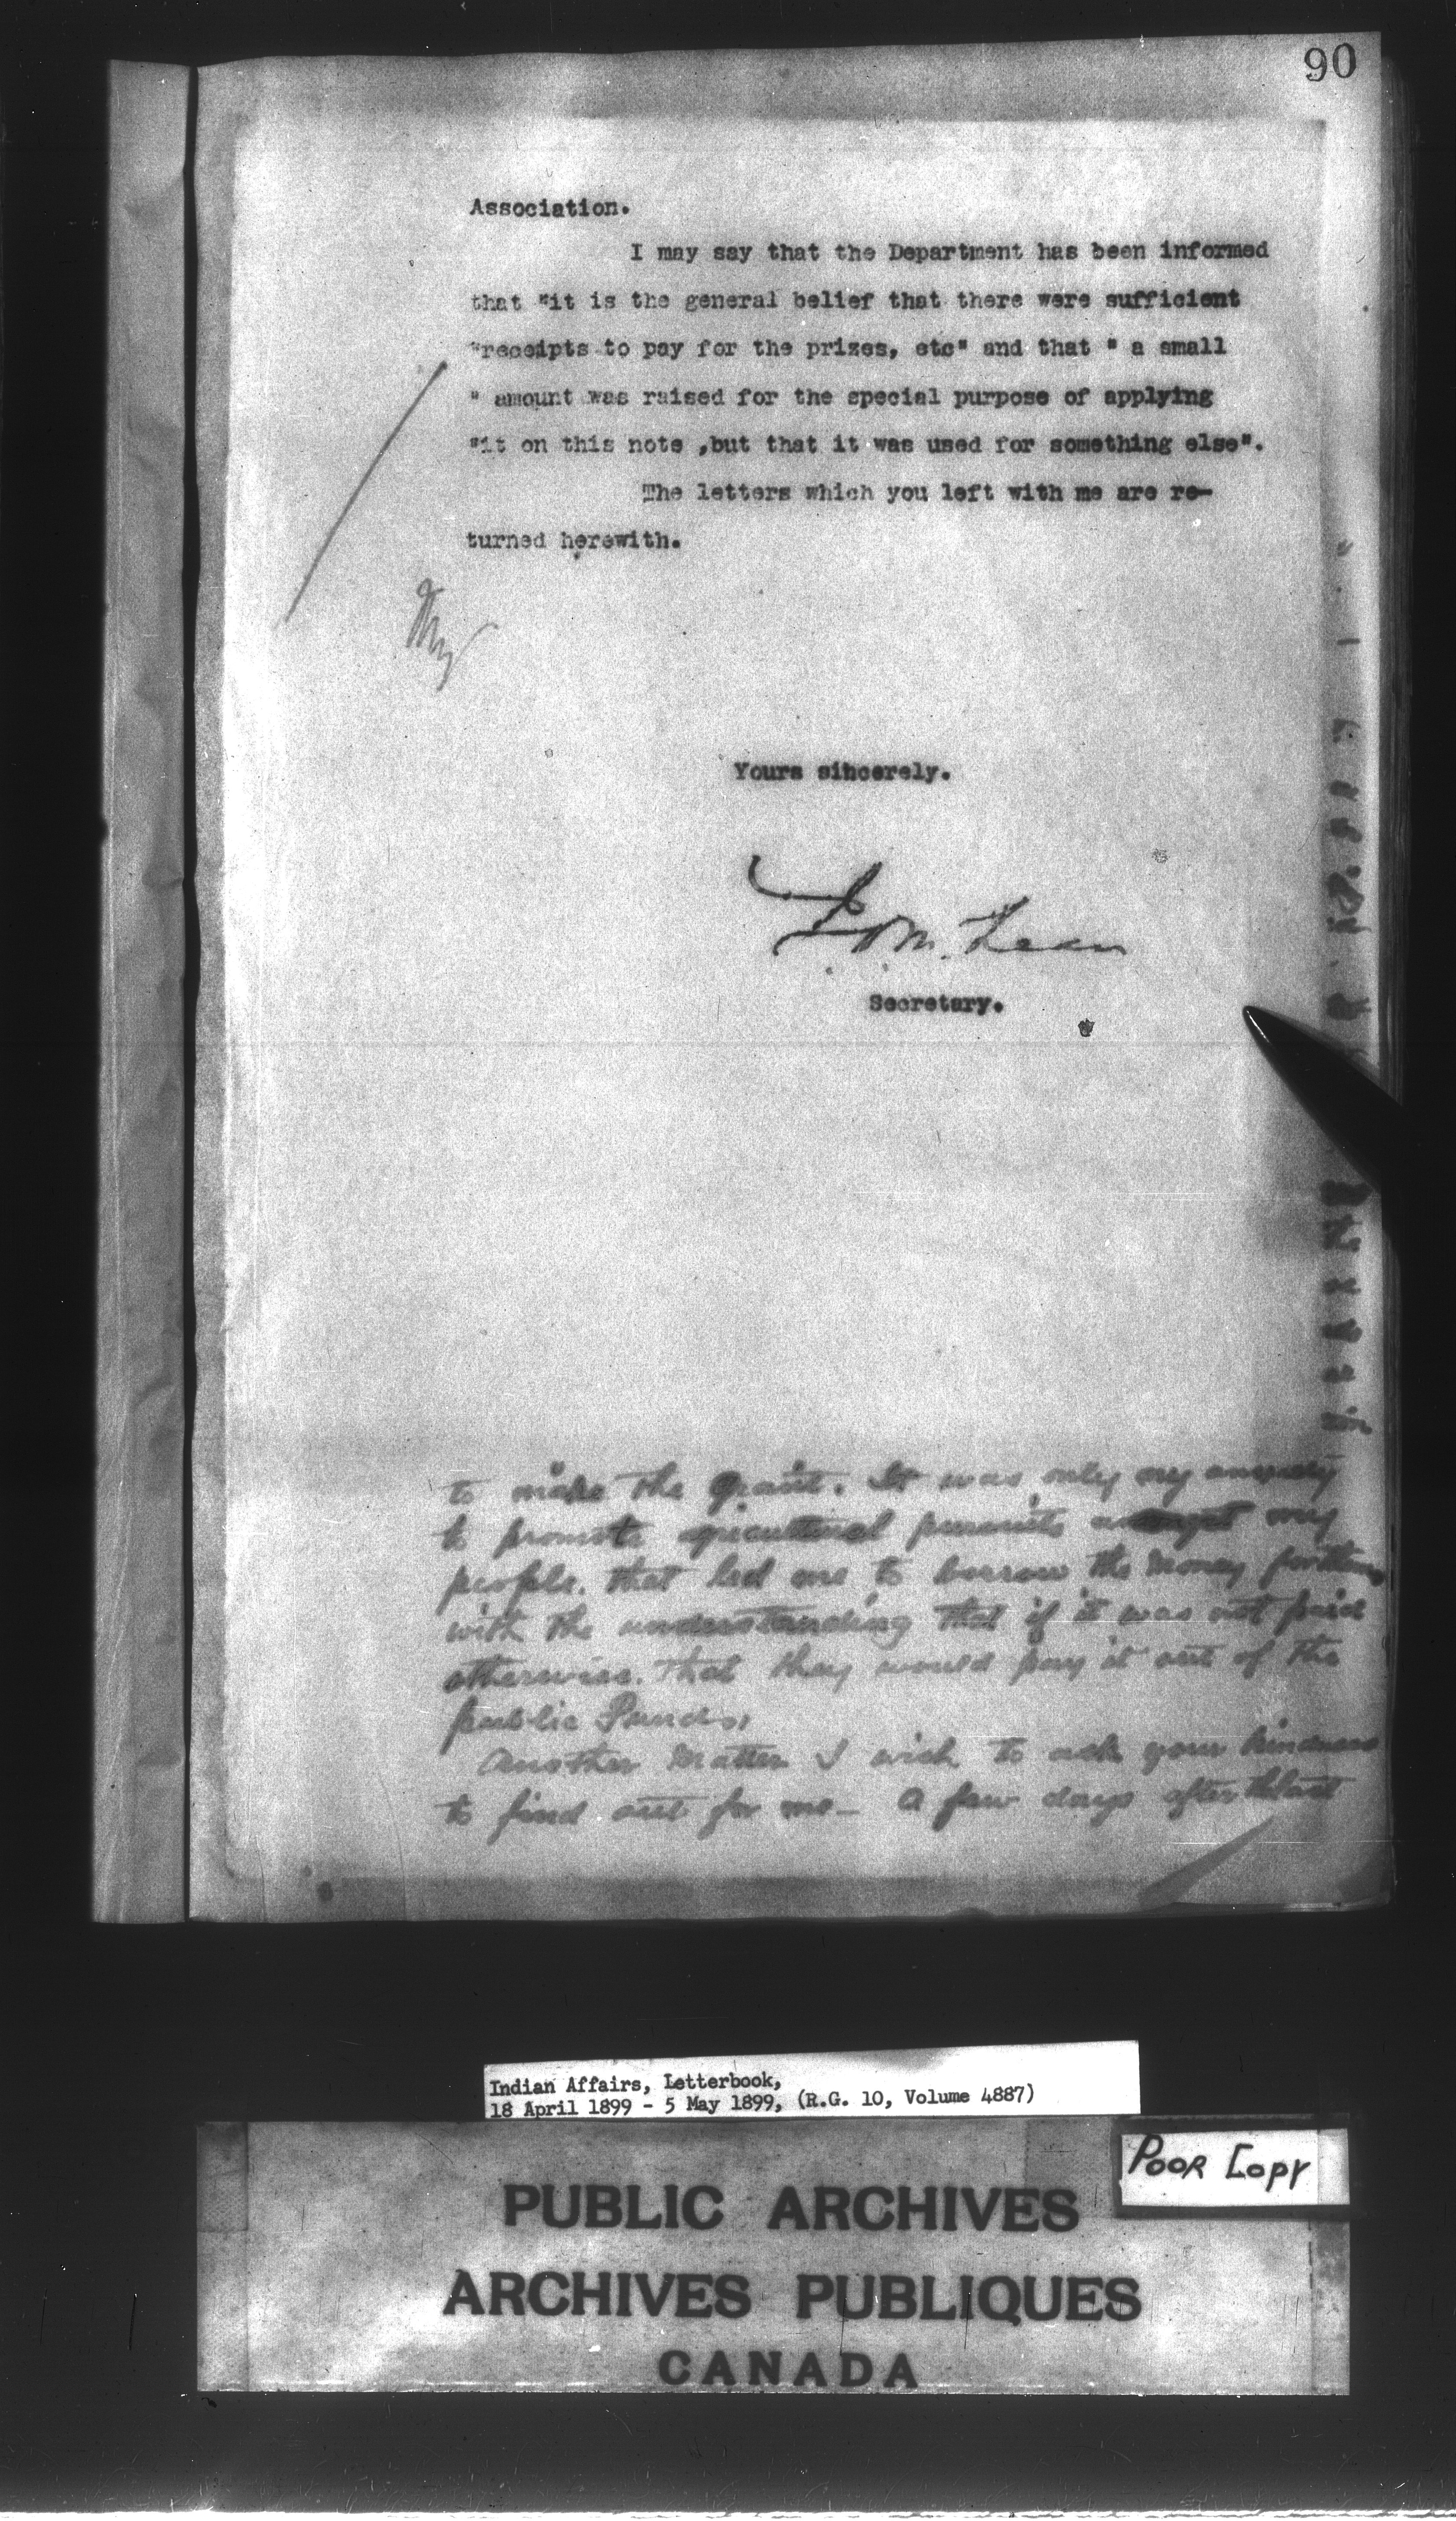 90
Association.
I may say that the Department has been informed
that "it is the general belief that there were sufficient
"receipts to pay for the prizes, etc" and that " a small
" amount was raised for the special purpose of applying
"it on this note ,but that it was used for something else".
The letters which you left with me are re-
turned herewith.
Yours sincerely.
Secretary.
to make the grant. It was only my anxiety
to promote agricultural pursuits amongst my
people. that led me to borrow the money for them
with the understanding that if it was not paid
otherwise. that they would pay it out of the
public Funds,
Another Matter I wish to ask your kindness
to find out for me- A few days after
Indian Affairs, Letterbook,
18 April 1899 - 5 May 1899, (R.G. 10, Volume 4887)
POOR COPY
PUBLIC ARCHIVES
ARCHIVES PUBLIQUES
CANADA